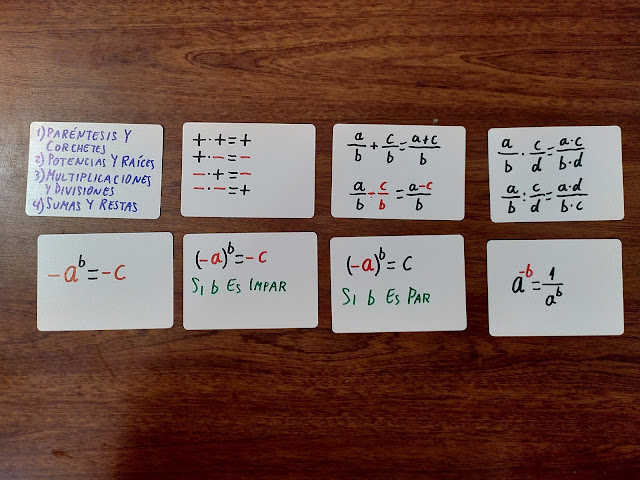 1) PARÉNTESIS Y
CORCHETES
2) POTENCIAS Y RAÍCES
3) MULTIPLICACIONES
Y DIVISIONES
4) SUMAS Y RESTAS
+ · + = +
+ · - = -
- · + = -
- · - = +
a/b + c/b = a+c/b
a/b - c/b = a-c/b
a/b · c/d = a·c/b·d
a/b : c/d = a·d/b·c
-a^b = -c
(-a)^b = -c
SI b ES IMPAR
(-a)^b = c
SI b ES PAR
a^-b = 1/a^b